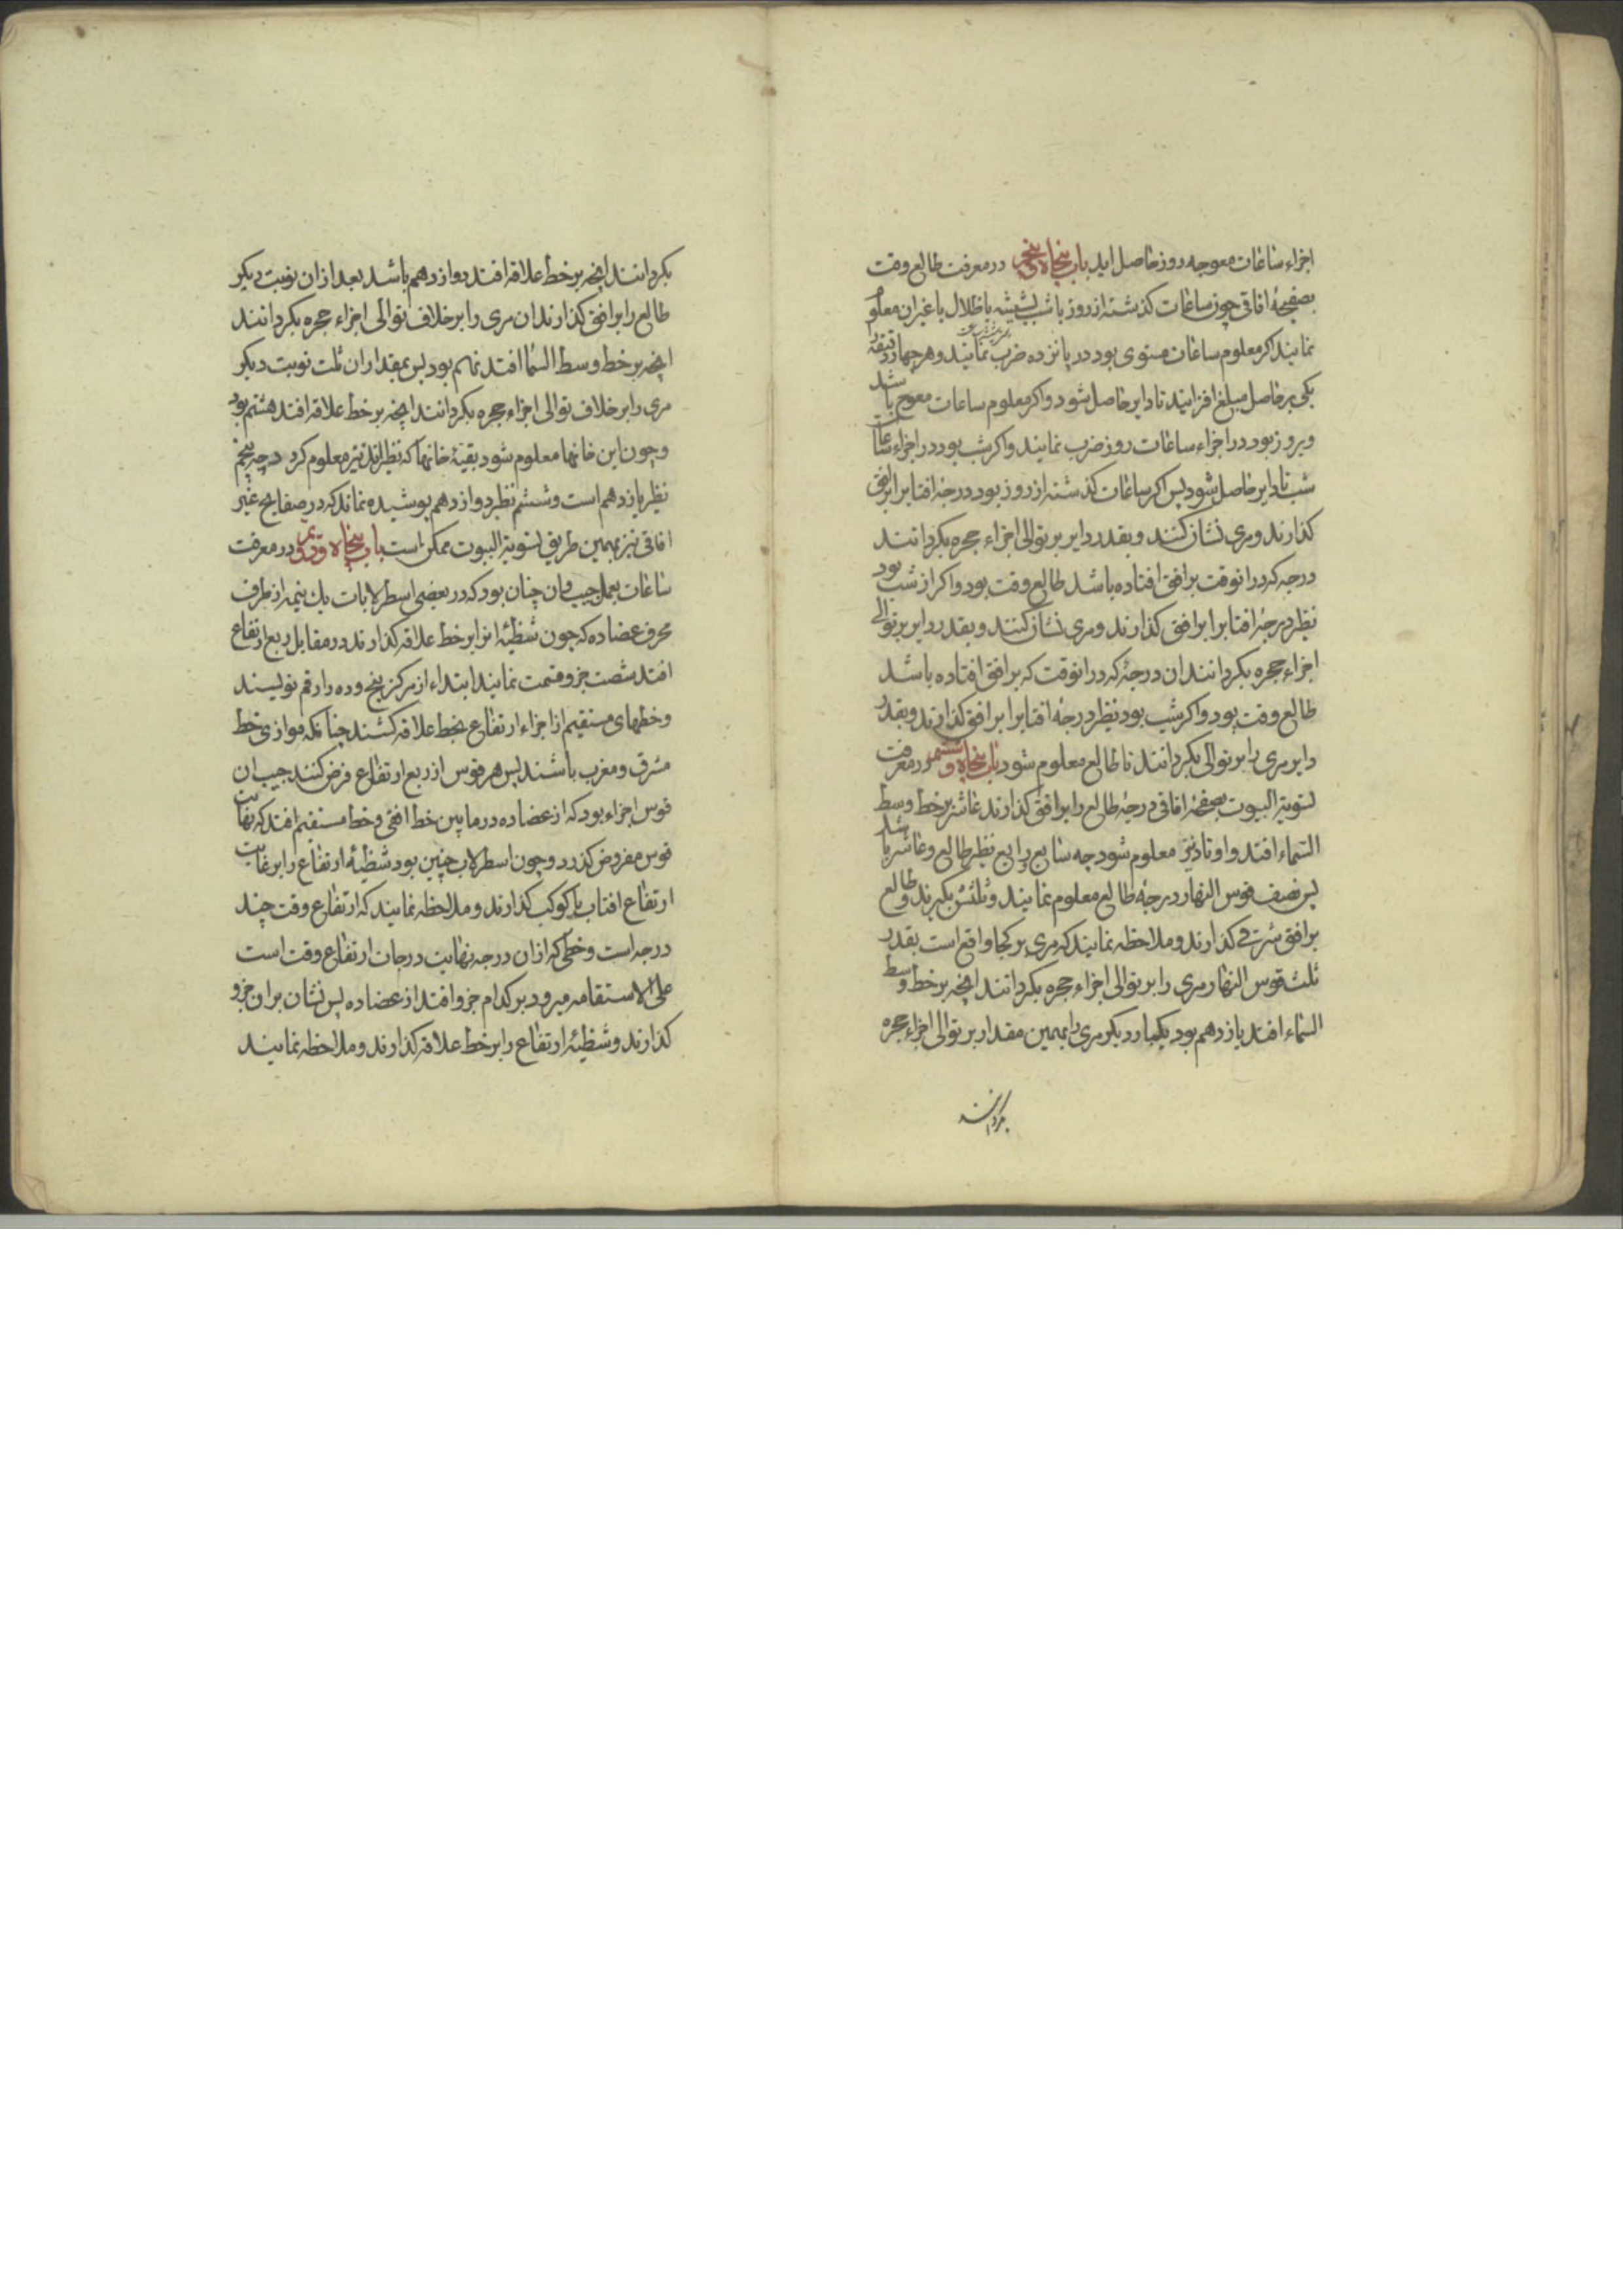 اجزاء ساعات معوجه روز حاصل اید باب پنجاه و پنجم در معرفت طالع وقت
بصفیحهٔ افاقی چون ساعات کذشته از روز یا شب بشیشه یا ظلال یا غیر ان معلوم
نمایند اکر معلوم ساعات مستوی بود در پانزده ضرب نمایند و هر چهار دقیقه
یکی بر حاصل مبلغ افزایند تا دایر حاصل شود و اکر معلوم ساعات معوج باشد
و بروز بود در اجزاء ساعات روز ضرب نمایند و اکر شب بود در اجزاء ساعات
شب تا دایر حاصل شود پس اکر ساعات کذشته از روز بود درجهٔ افتابرا بر افق
کذارند و مری نشان کنند و بقدر دایر بر توالی اجزاء حجره بکردانند
درجه که درانوقت بر افق افتاده باشد طالع وقت بود و اکر از شب بود
نظیر درجهٔ افتابرا بر افق کذارند و مری نشان کنند و بقدر دایر بر توالی
اجزاء حجره بکردانند ان درجهٔ که درانوقت که بر افق افتاده باشد
طالع وقت بود و اکر شب بود نظیر درجهٔ افتابرا بر افق کذارند و بقدر
دایر مری را بر توالی بکردانند تا طالع معلوم شود باب پنجاه و ششم در معرفت
تسویة البیوت بصفحهٔ افاقی درجهٔ طالع را بر افق کذارند عاشر بر خط وسط
السماء افتد و اوتاد نیز معلوم شود چه سابع و رابع نظیر طالع و عاشر باشد
پس نصف قوس النهار درجهٔ طالع معلوم نمایند و ثلثش بکیرند و طالع
بر افق شرقی کذارند و ملاحظه نمایند که مری بر کجا واقع است بقدر
ثلث قوس النهار مری را بر توالی اجزاء حجره بکردانند انچه بر خط وسط
السماء افتد یازدهم بود یکبار دیکر مری را بهمین مقدار بر توالی اجزاء حجره
بکردانند
بکردانند انچه بر خط علاقه افتد دوازدهم باشد بعد ازان نوبت دیکر
طالع را بر افق کذارند ان مری را بر خلاف توالی اجزاء حجره بکردانند
انچه بر خط وسط السما افتد نهم بود پس بمقدار ان ثلث نوبت دیکر
مری را بر خلاف توالی اجزاء حجره بکردانند انچه بر خط علاقه افتد هشتم بود
و چون این خانها معلوم شود بقیهٔ خانها که نظیر اند نیز معلوم کرد چه پنجم
نظیر یازدهم است و ششم نظیر دوازدهم پوشیده نماند که در صفایح غیر
افاقی نیز بهمین طریق تسویة البیوت ممکن است باب پنجاه و در معرفت
ساعات بعمل جیب و ان چنان بود که در بعضی اسطرلابات یك نیمه از طرف
محرف عضاده که چون شظیهٔ انرا بر خط علاقه کذارند در مقابل ربع ارتفاع
افتد شصت جزو قسمت نمایند ابتداء از مرکز پنج و ده را رقم نویسند
و خطهای مستقیم از اجزاء ارتفاع بخط علاقه کشند چنانکه موازی خط
مشرق و مغرب باشند پس هر قوس از ربع ارتفاع فرض کنند جیب ان
قوس اجزاء بود که از عضاده در مابین خط افقی و خط مستقیم افتد که بنهایت
قوس مفروض کذرد و چون اسطرلاب چنین بود شظیهٔ ارتفاع را بر غایت
ارتفاع افتاب یا کوکب کذارند و ملاحظه نمایند که ارتفاع وقت چند
درجه است و خطی که ازان درجه نهایت درجات ارتفاع وقت است
علی الاستقامه میرود بر کدام جزو افتد از عضاده پس نشان بران جزو
کذارند و شظیهٔ ارتفاع را بر خط علاقه کذارند و ملاحظه نمایند